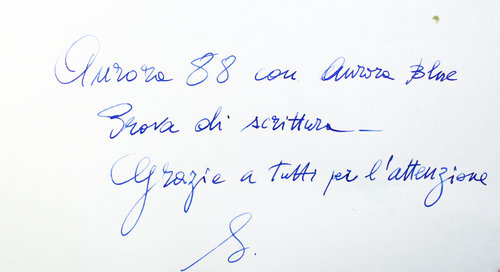 Aurora 88 con Aurora Blue
Prova di scrittura –
Grazie a tutti per l'attenzione
S.